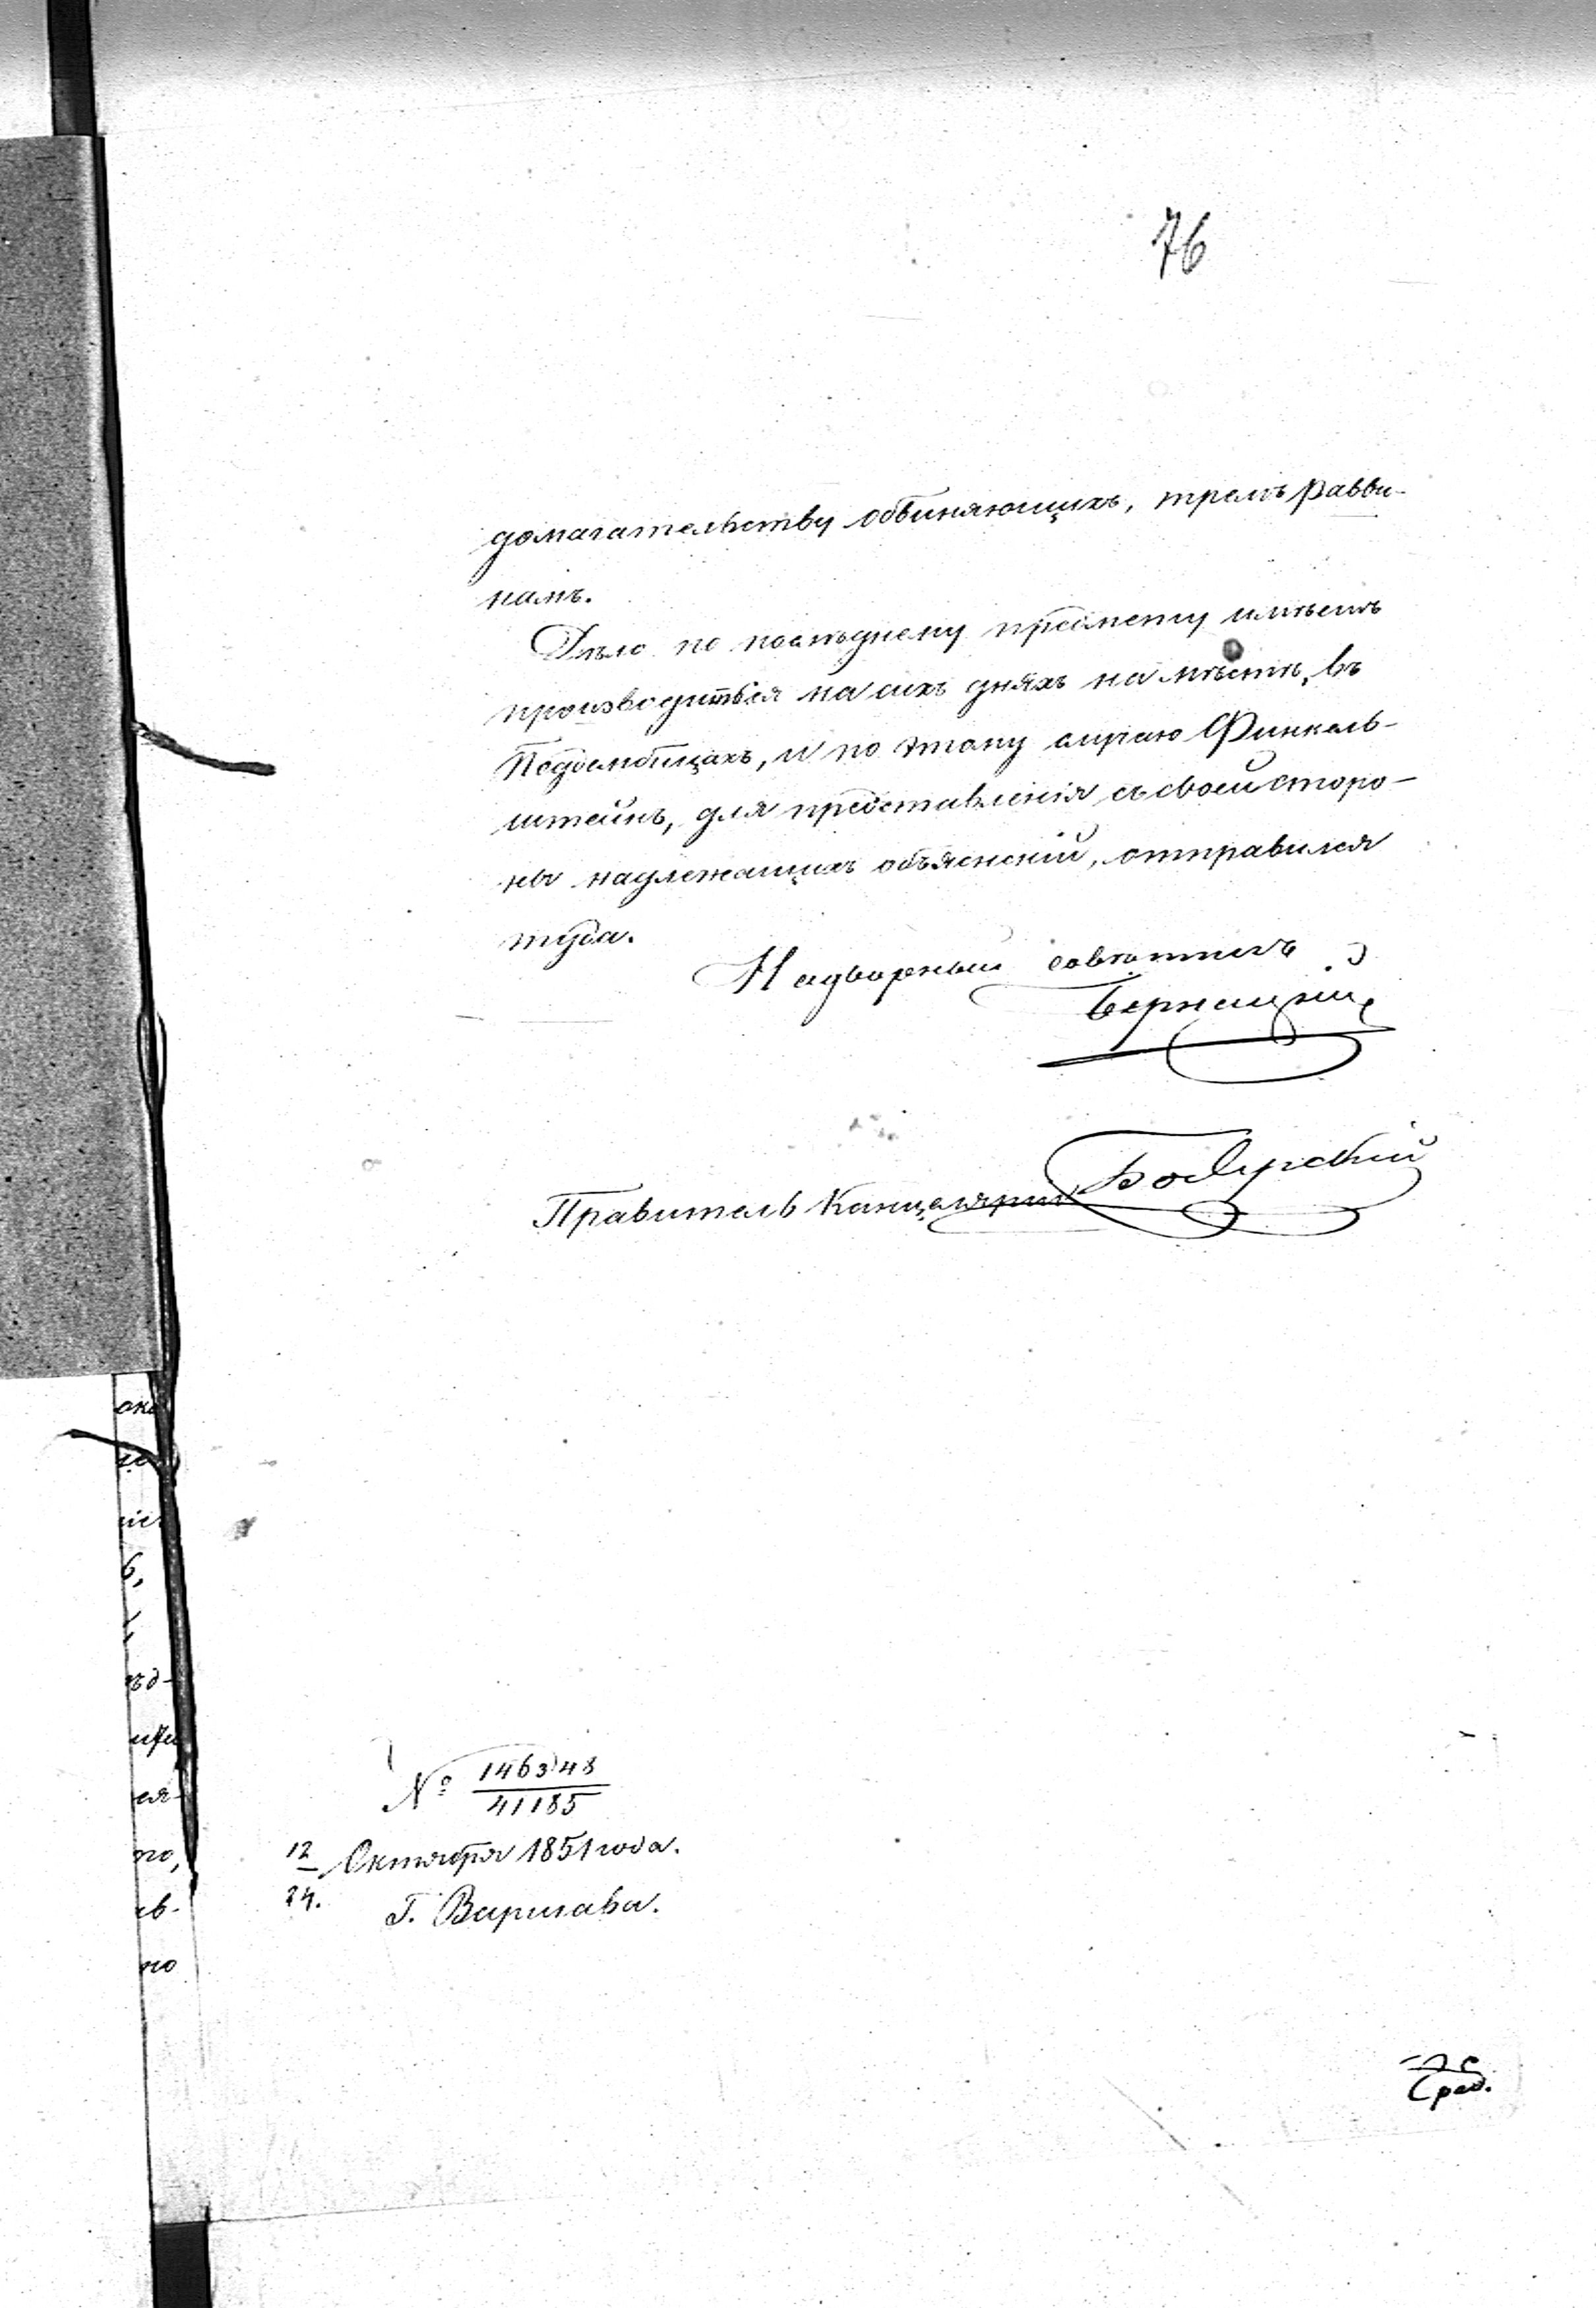 76
домагательству обвиняющихъ, тремъ Равви-
намъ.
Дѣло по послѣднему предмету имѣетъ
производиться на сихъ дняхъ на мѣстѣ, въ
Поддембицахъ, и по этому случаю Финкель-
штейнъ, для представленія съ своей сторо-
ны надлежащихъ объясненій, отправился
туда.
Надворный Совѣтникъ
Правитель Канцеляріи
№ 146348
41185
12
24. Октября 1851 года.
Г. Варшава.